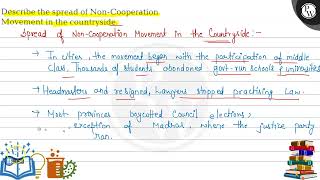 Describe the spread of Non-Cooperation
Movement in the countryside.
Spread of Non-Cooperation Movement in the Countryside:-
→ In cities, the movement began with the participation of middle
class, Thousands of students abandoned govt-run schools & universities
→ Headmasters and resigned, lawyers stopped practising law.
→ Most provinces boycotted Council elections,
exception of Madras, where the justice party
ran.